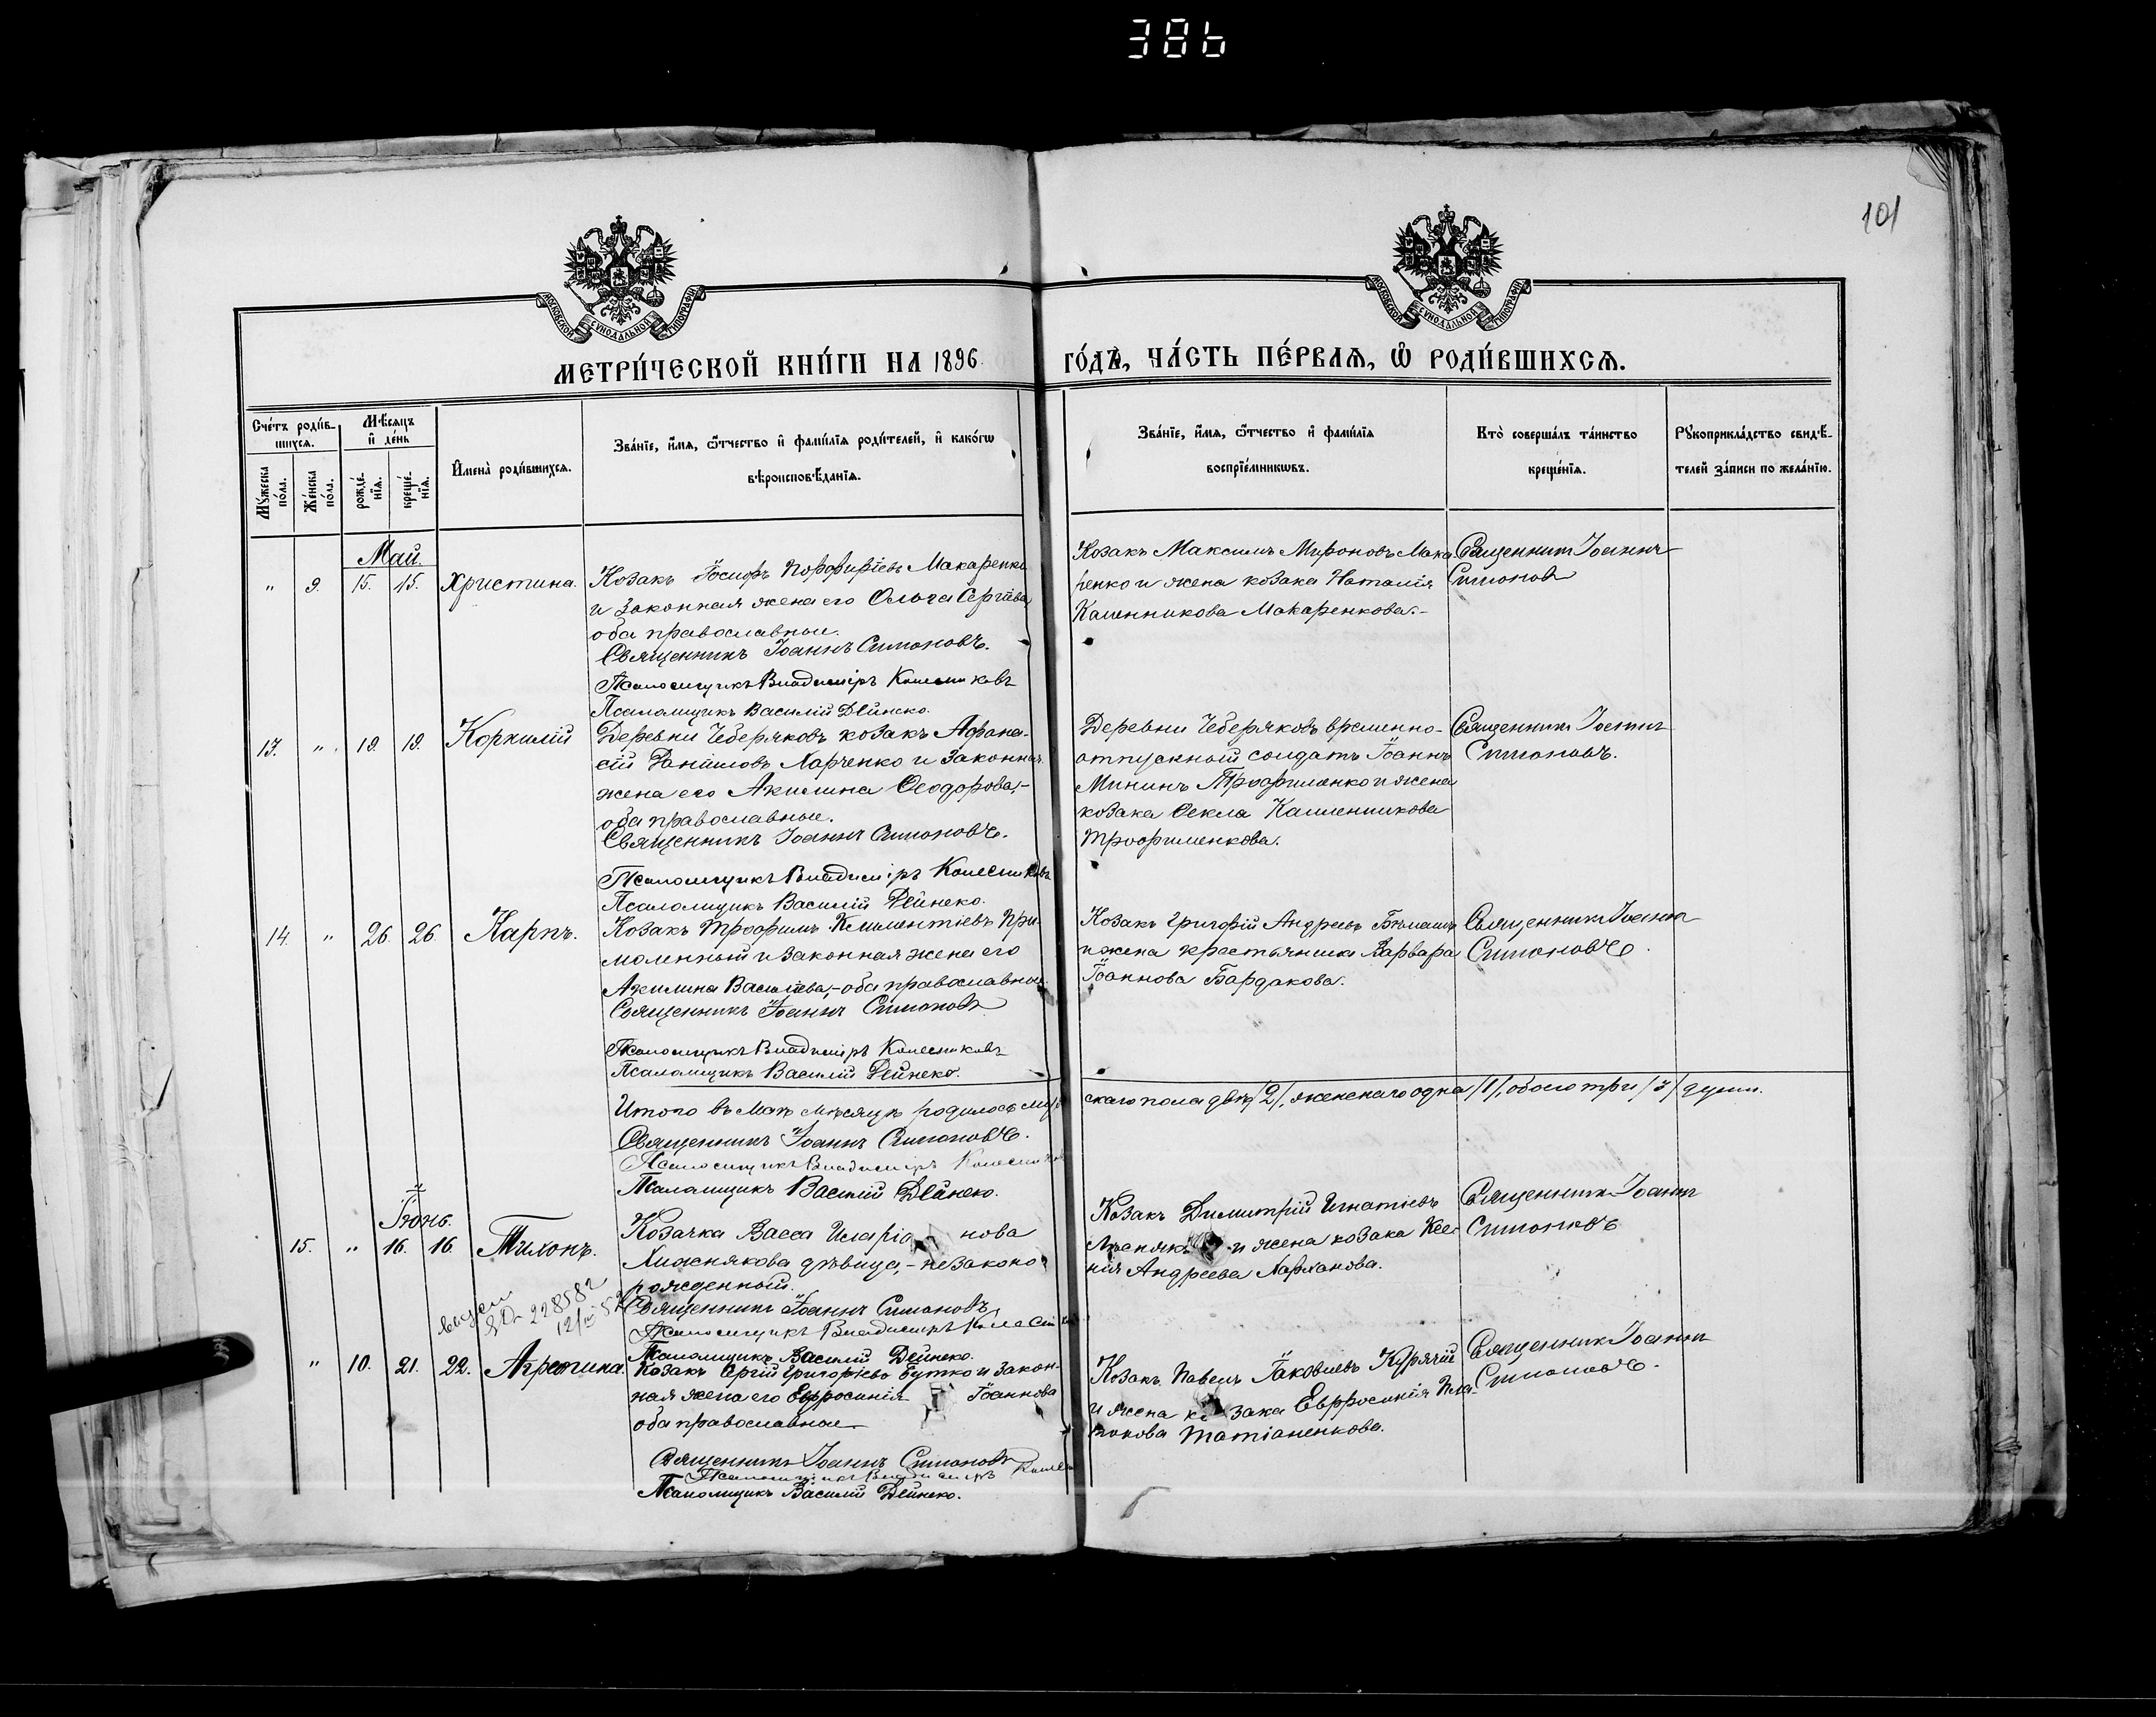 386
101
МОСКОВСКОЙ СѴНОДАЛЬНОЙ ТИПОГРАФІИ
МОСКОВСКОЙ СѴНОДАЛЬНОЙ ТИПОГРАФІИ
МЕТРИ́ЧЕСКОЙ КНИ́ГИ НА 1896 ГО́ДЪ, ЧА́СТЬ ПЕ́РВАѦ, Ѽ РОДИ́ВШИХСѦ.
Сче́тъ роди́в-
шихся.
Мѣ́сяцъ
и҆ де́нь
Мꙋ́жеска
по́ла.
Же́нска
по́ла.
рожде́-
нїя.
креще́-
нїя.
И҆мена̀ роди́вшихся.
Зва́нїе, и҆́мя, ѻ҆́тчество и҆ фами́лїя роди́телей, и҆ како́гѡ
вѣроисповѣ́данїя.
Зва́нїе, и҆́мя, ѻ҆́тчество и҆ фами́лїя
воспрїе́мникѡвъ.
Кто̀ соверша́лъ та́инство
креще́нїя.
Рꙋкоприкла́дство свидѣ́-
телей за́писи по жела́нїю.
Май.
" 9. 15. 15. Христина.
Козакъ Іосифъ Порфиріевъ Макаренко
и законная жена его Ольга Сергіева,
оба православные.
Священникъ Іоаннъ Симоновъ.
Псаломщикъ Владиміръ Колесниковъ
Псаломщикъ Василій Дейнеко.
Козакъ Максимъ Мироновъ Мака
ренко и жена козака Наталія
Калинникова Макаренкова.-
Священникъ Іоаннъ
Симоновъ
13. " 19. 19. Корнилій
Деревни Чеберяковъ козакъ Афана-
сій Даніиловъ Ларченко и законная
жена его Акилина Ѳеодорова,-
оба православные.
Священникъ Іоаннъ Симоновъ.
Псаломщикъ Владиміръ Колесниковъ
Псаломщикъ Василій Дейнеко.
Деревни Чеберяковъ временно-
отпускный солдатъ Іоаннъ
Мининъ Трофименко и жена
козака Ѳекла Калинникова
Трофименкова.
Священникъ Іоаннъ
Симоновъ.
14. " 26. 26. Карпъ.
Козакъ Трофимъ Климентіевъ При-
моленный и законная жена его
Акилина Васильева,-оба православные.
Священникъ Іоаннъ Симоновъ
Псаломщикъ Владиміръ Колесниковъ
Псаломщикъ Василій Дейнеко.
Козакъ Григорій Андреевъ
и жена крестьянина Варвара
Іоаннова Бардакова.
Священникъ Іоаннъ
Симоновъ.
Итого въ Маѣ мѣсяцѣ родилось муж
скаго пола два /2/, женскаго одна /1/, обоего три /3/ души.
Священникъ Іоаннъ Симоновъ.
Псаломщикъ Владиміръ Колесников
Псаломщикъ Василій Дейнеко.
Іюнь.
15. " 16. 16. Тихонъ.
Козачка Васса Иларіо нова
Хижнякова дѣвица,- незаконо-
рожденный.
Священникъ Іоаннъ Симоновъ
Псаломщикъ Владиміръ Колесник
Псаломщикъ Василій Дейнеко.
Козакъ Димитрій Игнатіевъ
и жена козака Ксе-
нія Андреева
Священникъ Іоаннъ
Симоновъ
228582
" 10. 21. 22. Агрепина.
Козакъ Сергій Григорьевъ Бутко и закон-
ная жена его Евфросинія Іоаннова
оба православные
Священникъ Іоаннъ Симоновъ
Псаломщикъ Владиміръ Колесн
Псаломщикъ Василій Дейнеко.
Козакъ Павелъ Іаковлевъ Курячій
и жена козака Евфросинія Пла-
тонова Татіаненкова.
Священникъ Іоаннъ
Симоновъ.